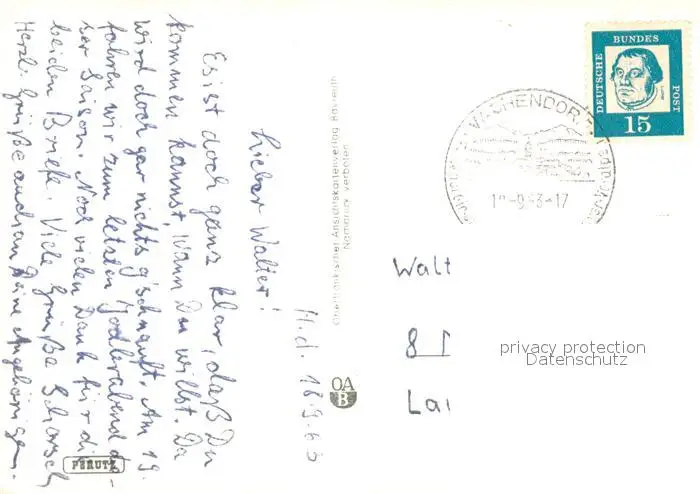 H.d. 16.9.63
Lieber Walter!
Es ist doch ganz klar, daß Du
kommen kannst, wann Du willst. Da
wird doch gar nichts g'schnauft. Am 19.
fahren wir zum letzten Jodlerabend die-
ser Saison. Noch vielen Dank für die
beiden Briefe. Viele Grüße Schorsch
Herzl. Grüße auch an Deine Angehörigen.
PERUTZ
Oberfränkischer Ansichtskartenverlag Bayreuth
Nachdruck verboten
OA
B
DEUTSCHE
BUNDES
POST
15
-9.63-17
Walt
8
Lai
privacy protection
Datenschutz